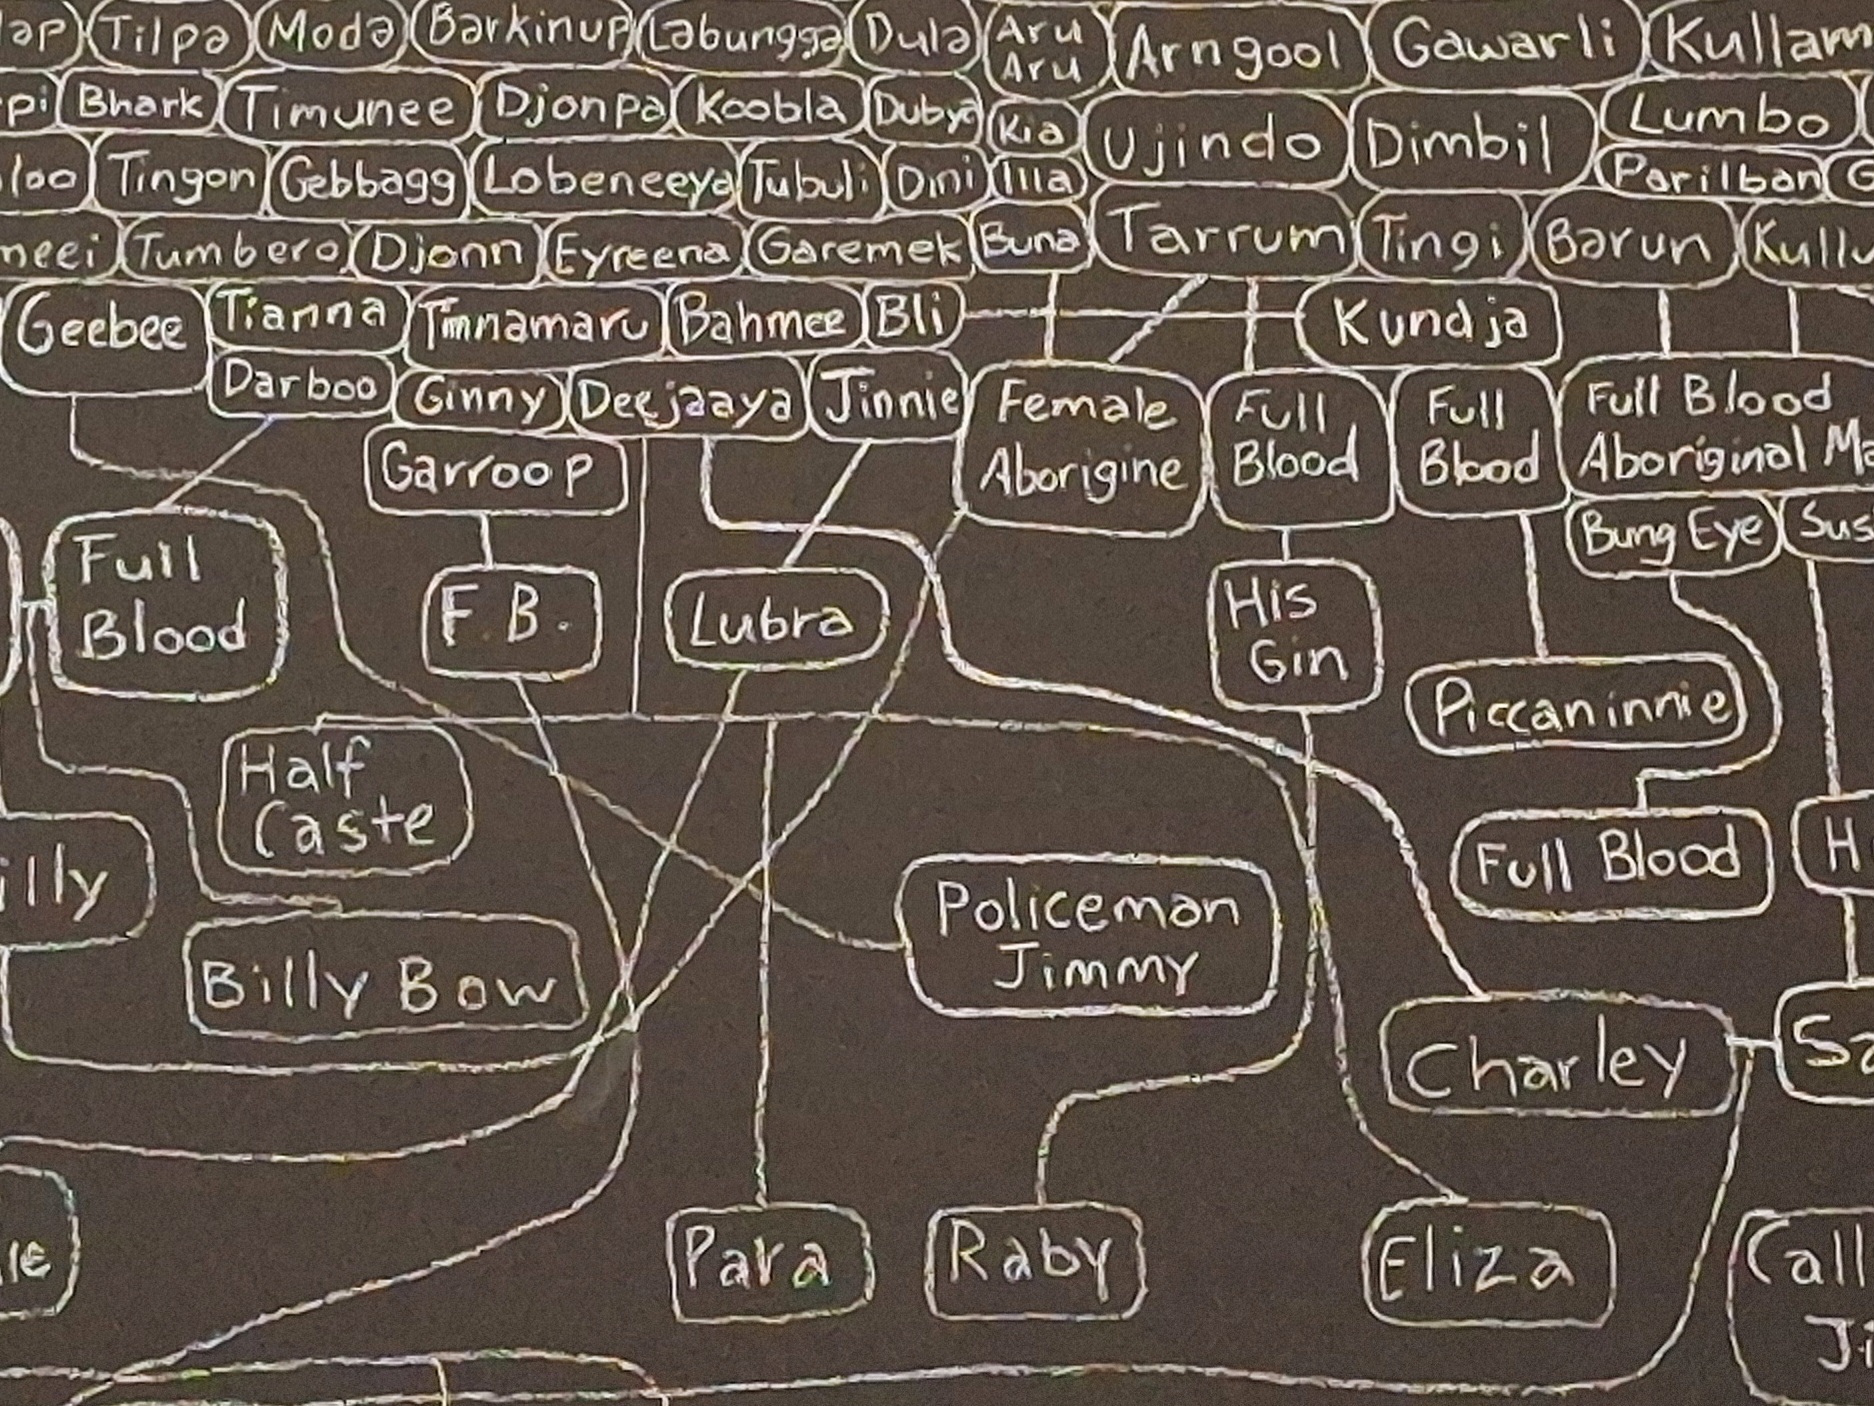 Tilpa Moda Barkinup Labungga Dula Aru Aru Arngool Gawarli Kullam
pi Bhark Timunee Djonpa Koobla Dubya Kia Ujindo Dimbil Lumbo
loo Tingon Gebbagg Lobeneeya Tubuli Dini Illa Parilban
neei Tumbero Djonn Eyreena Garemek Buna Tarrum Tingi Barun Kullu
Geebee Tianna Timnamaru Bahmee Bli Kundja
Darboo Ginny Deejaaya Jinnie
Female
Aborigine
Full
Blood
Full
Blood
Full Blood
Aboriginal Ma
Garroop
Bung Eye Sus
Full
Blood
F.B.
Lubra
His
Gin
Piccaninnie
Half
Caste
Full Blood
H
illy
Policeman
Jimmy
Billy Bow
Charley
Sa
le
Para Raby Eliza
Call
Ji